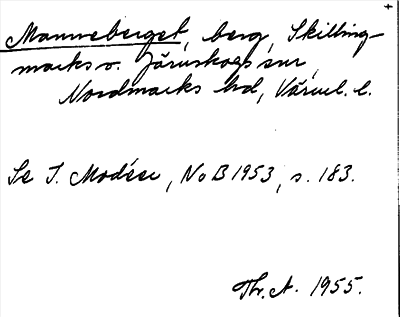 Manneberget, berg, Skilling-
marks o. Järnskogs snr,
Nordmarks hd, Värml. l.
Se I. Modéer, NoB 1953, s. 183.
Thr. A. 1955.